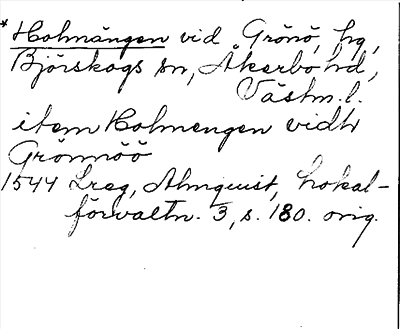 *Holmängen vid Grönö, frg,
Björskogs sn, Åkerbo hd,
Västm. l.
item Holmengen vidh
Grönnöö
1544 Lreg, Almquist, Lokal-
förvaltn. 3, s. 180. orig.